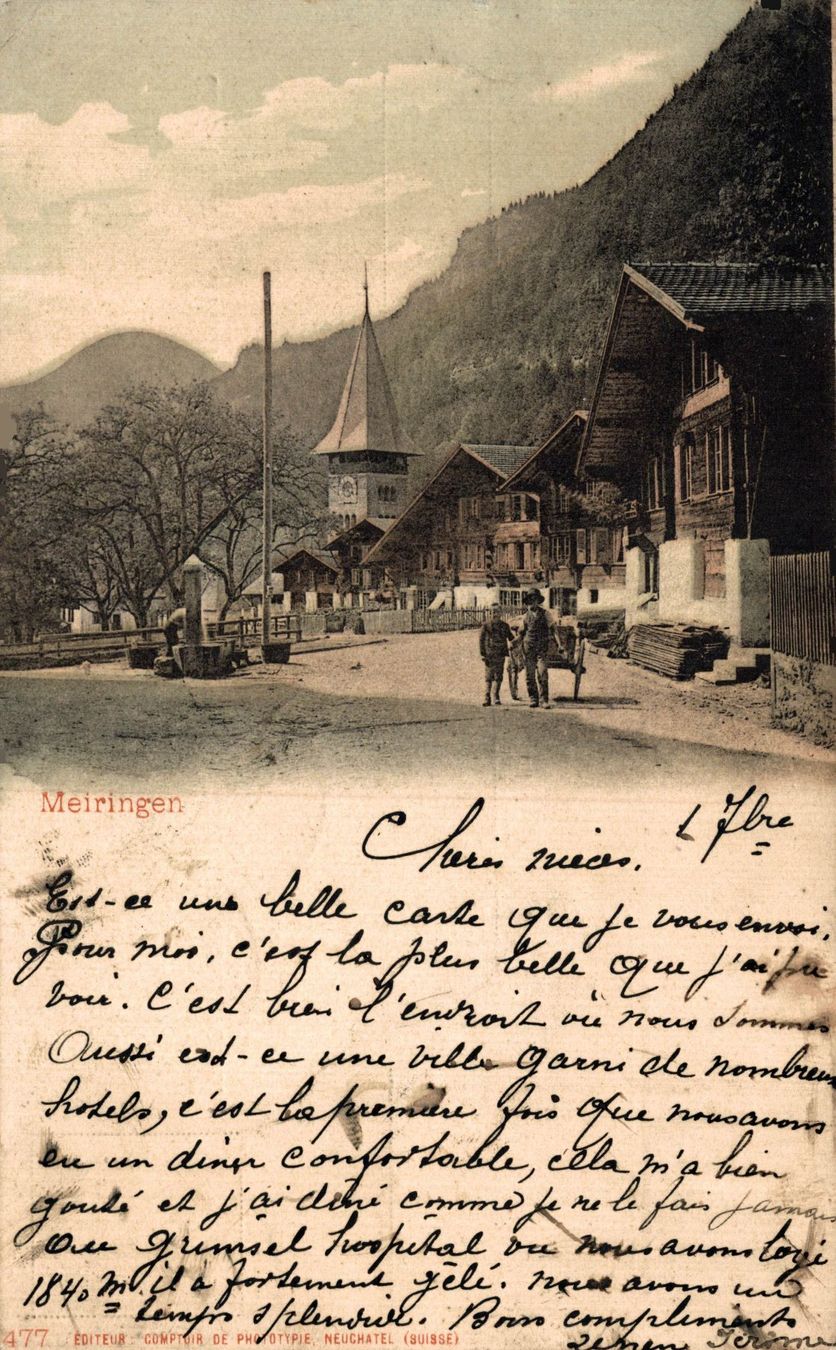 Meiringen
1 7bre
Cheres nieces.
Est-ce une belle carte que je vous envoi.
Pour moi, c'est la plus belle que j'ai pu
voir. C'est bien l'endroit où nous sommes
Aussi est-ce une ville garni de nombreux
hotels, c'est la première fois que nous avons
eu un diner confortable, cela m'a bien
gouté et j'ai diné comme je ne le fais jamais
Au Grimsel hospital ou nous avons logé
1840 m. il a fortement gêlé. nous avons un
temps splendide. Bons compliments
Jérome
477 EDITEUR: COMPTOIR DE PHOTOTYPIE, NEUCHATEL (SUISSE)